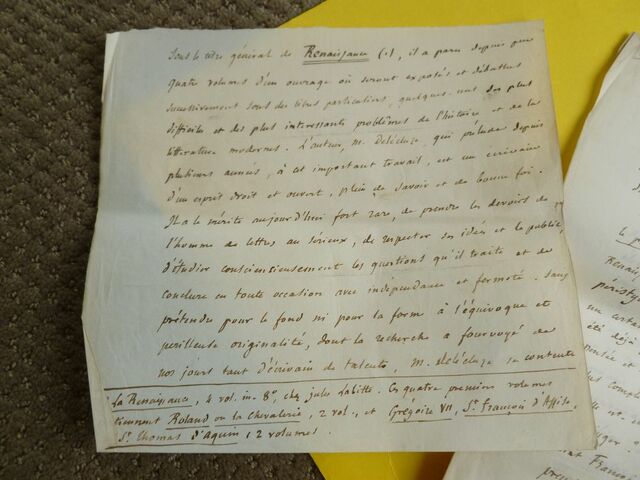 Sous le titre général de Renaissance (1), il a paru depuis peu
quatre volumes d'un ouvrage où seront exposés et débattus
successivement sous des titres particuliers, quelques-uns des plus
difficiles et des plus intéressants problèmes de l'histoire et de la
littérature modernes. L'auteur, M. Delécluze, qui prélude depuis
plusieurs années, à cet important travail, est un écrivain
d'un esprit droit et ouvert, plein de savoir et de bonne foi.
Il a le mérite aujourd'hui fort rare, de prendre les devoirs de
l'homme de lettres au sérieux, de respecter ses idées et le public,
d'étudier consciencieusement les questions qu'il traite et de
conclure en toute occasion avec indépendance et fermeté. Sans
prétendre pour le fond ni pour la forme à l'équivoque et
périlleuse originalité, dont la recherche a fourvoyé de
nos jours tant d'écrivains de talents, M. Delécluze se contente
La Renaissance, 4 vol. in-8°, chez Jules Labitte. Ces quatre premiers volumes
tiennent Roland ou la Chevalerie, 2 vol., et Grégoire VII, St. François d'Assise,
St. Thomas d'Aquin, 2 volumes.